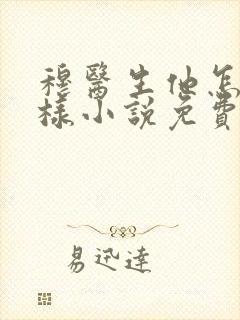 穆醫生他怎
樣小說免費
易迅達